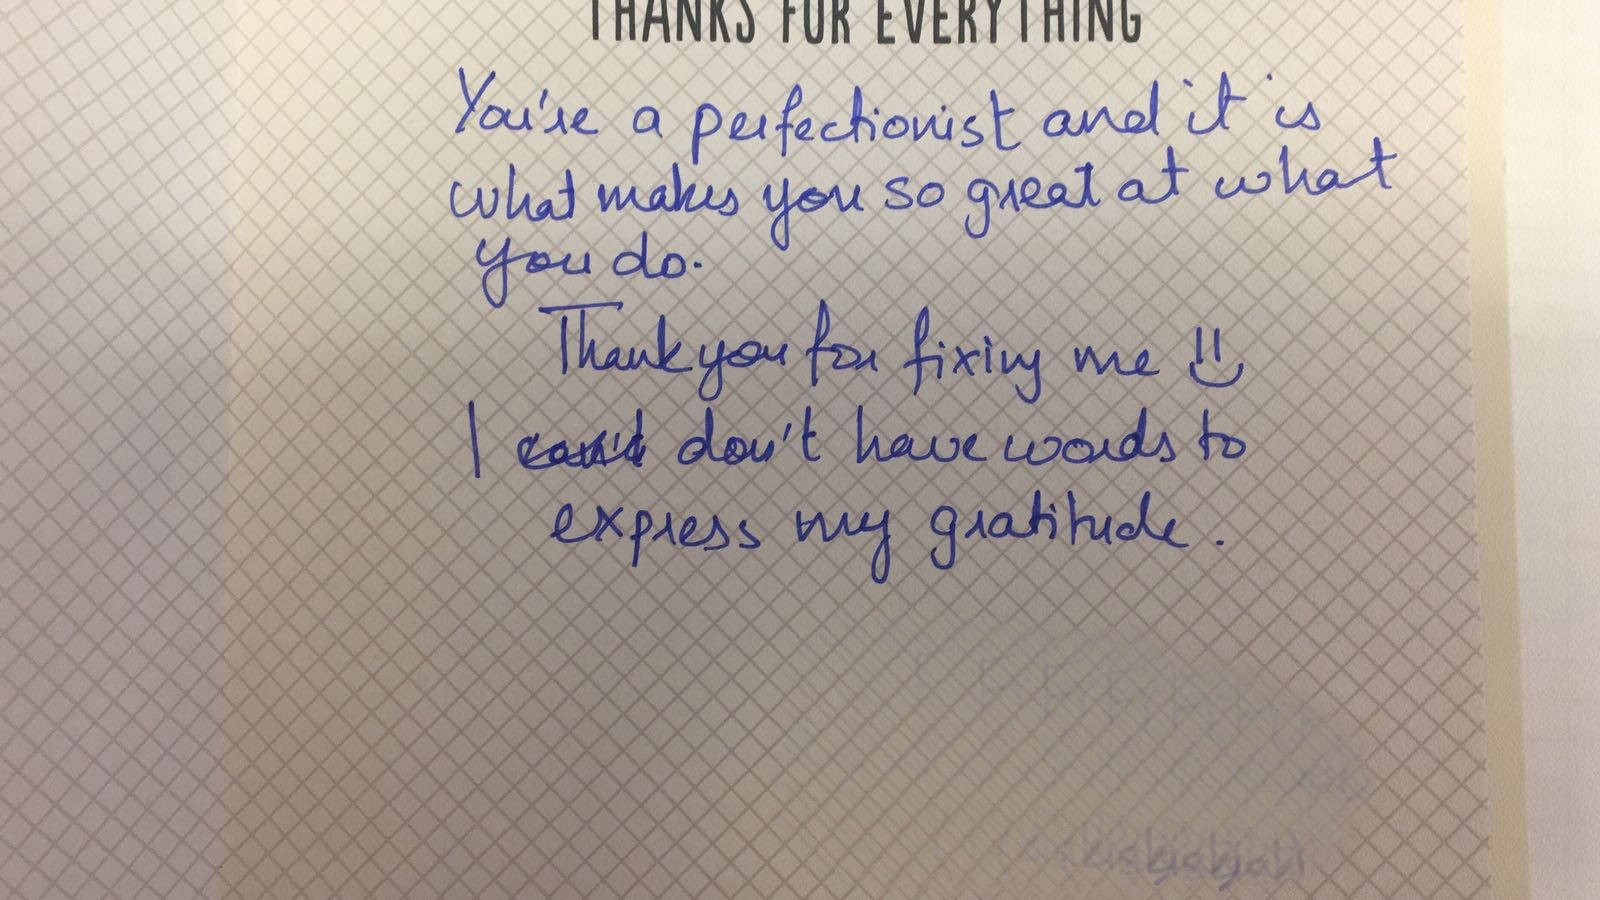 THANKS FOR EVERYTHING
You're a perfectionist and it is
what makes you so great at what
you do.
Thank you for fixing me
I don't have words to
express my gratitude.